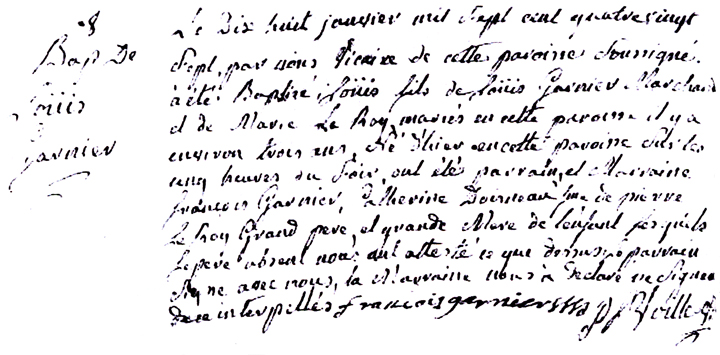 Bap De
Loüis
Garnier
Le Dix huit janvier mil Sept cent quatrevingt
Sept, par nous Vicaire de cette paroisse Soussigné
a été Baptisé Loüis fils de Loüis Garnier Marchand
et de Marie Le Roy, mariés en cette paroisse il y a
environ trois ans, Né d'hier en cette paroisse Sur les
cinq heures du Soir, ont étés parrain, et Marraine
françois Garnier, Catherine fme de pierre
Le Roy Grand pere, et grande Mere de l'enfant lesquels
Le pere absent nous ont attesté ce que dessus, le parrain
Signe avec nous, la Marraine nous a Declaré ne Signer
De ce interpellés françois garnier